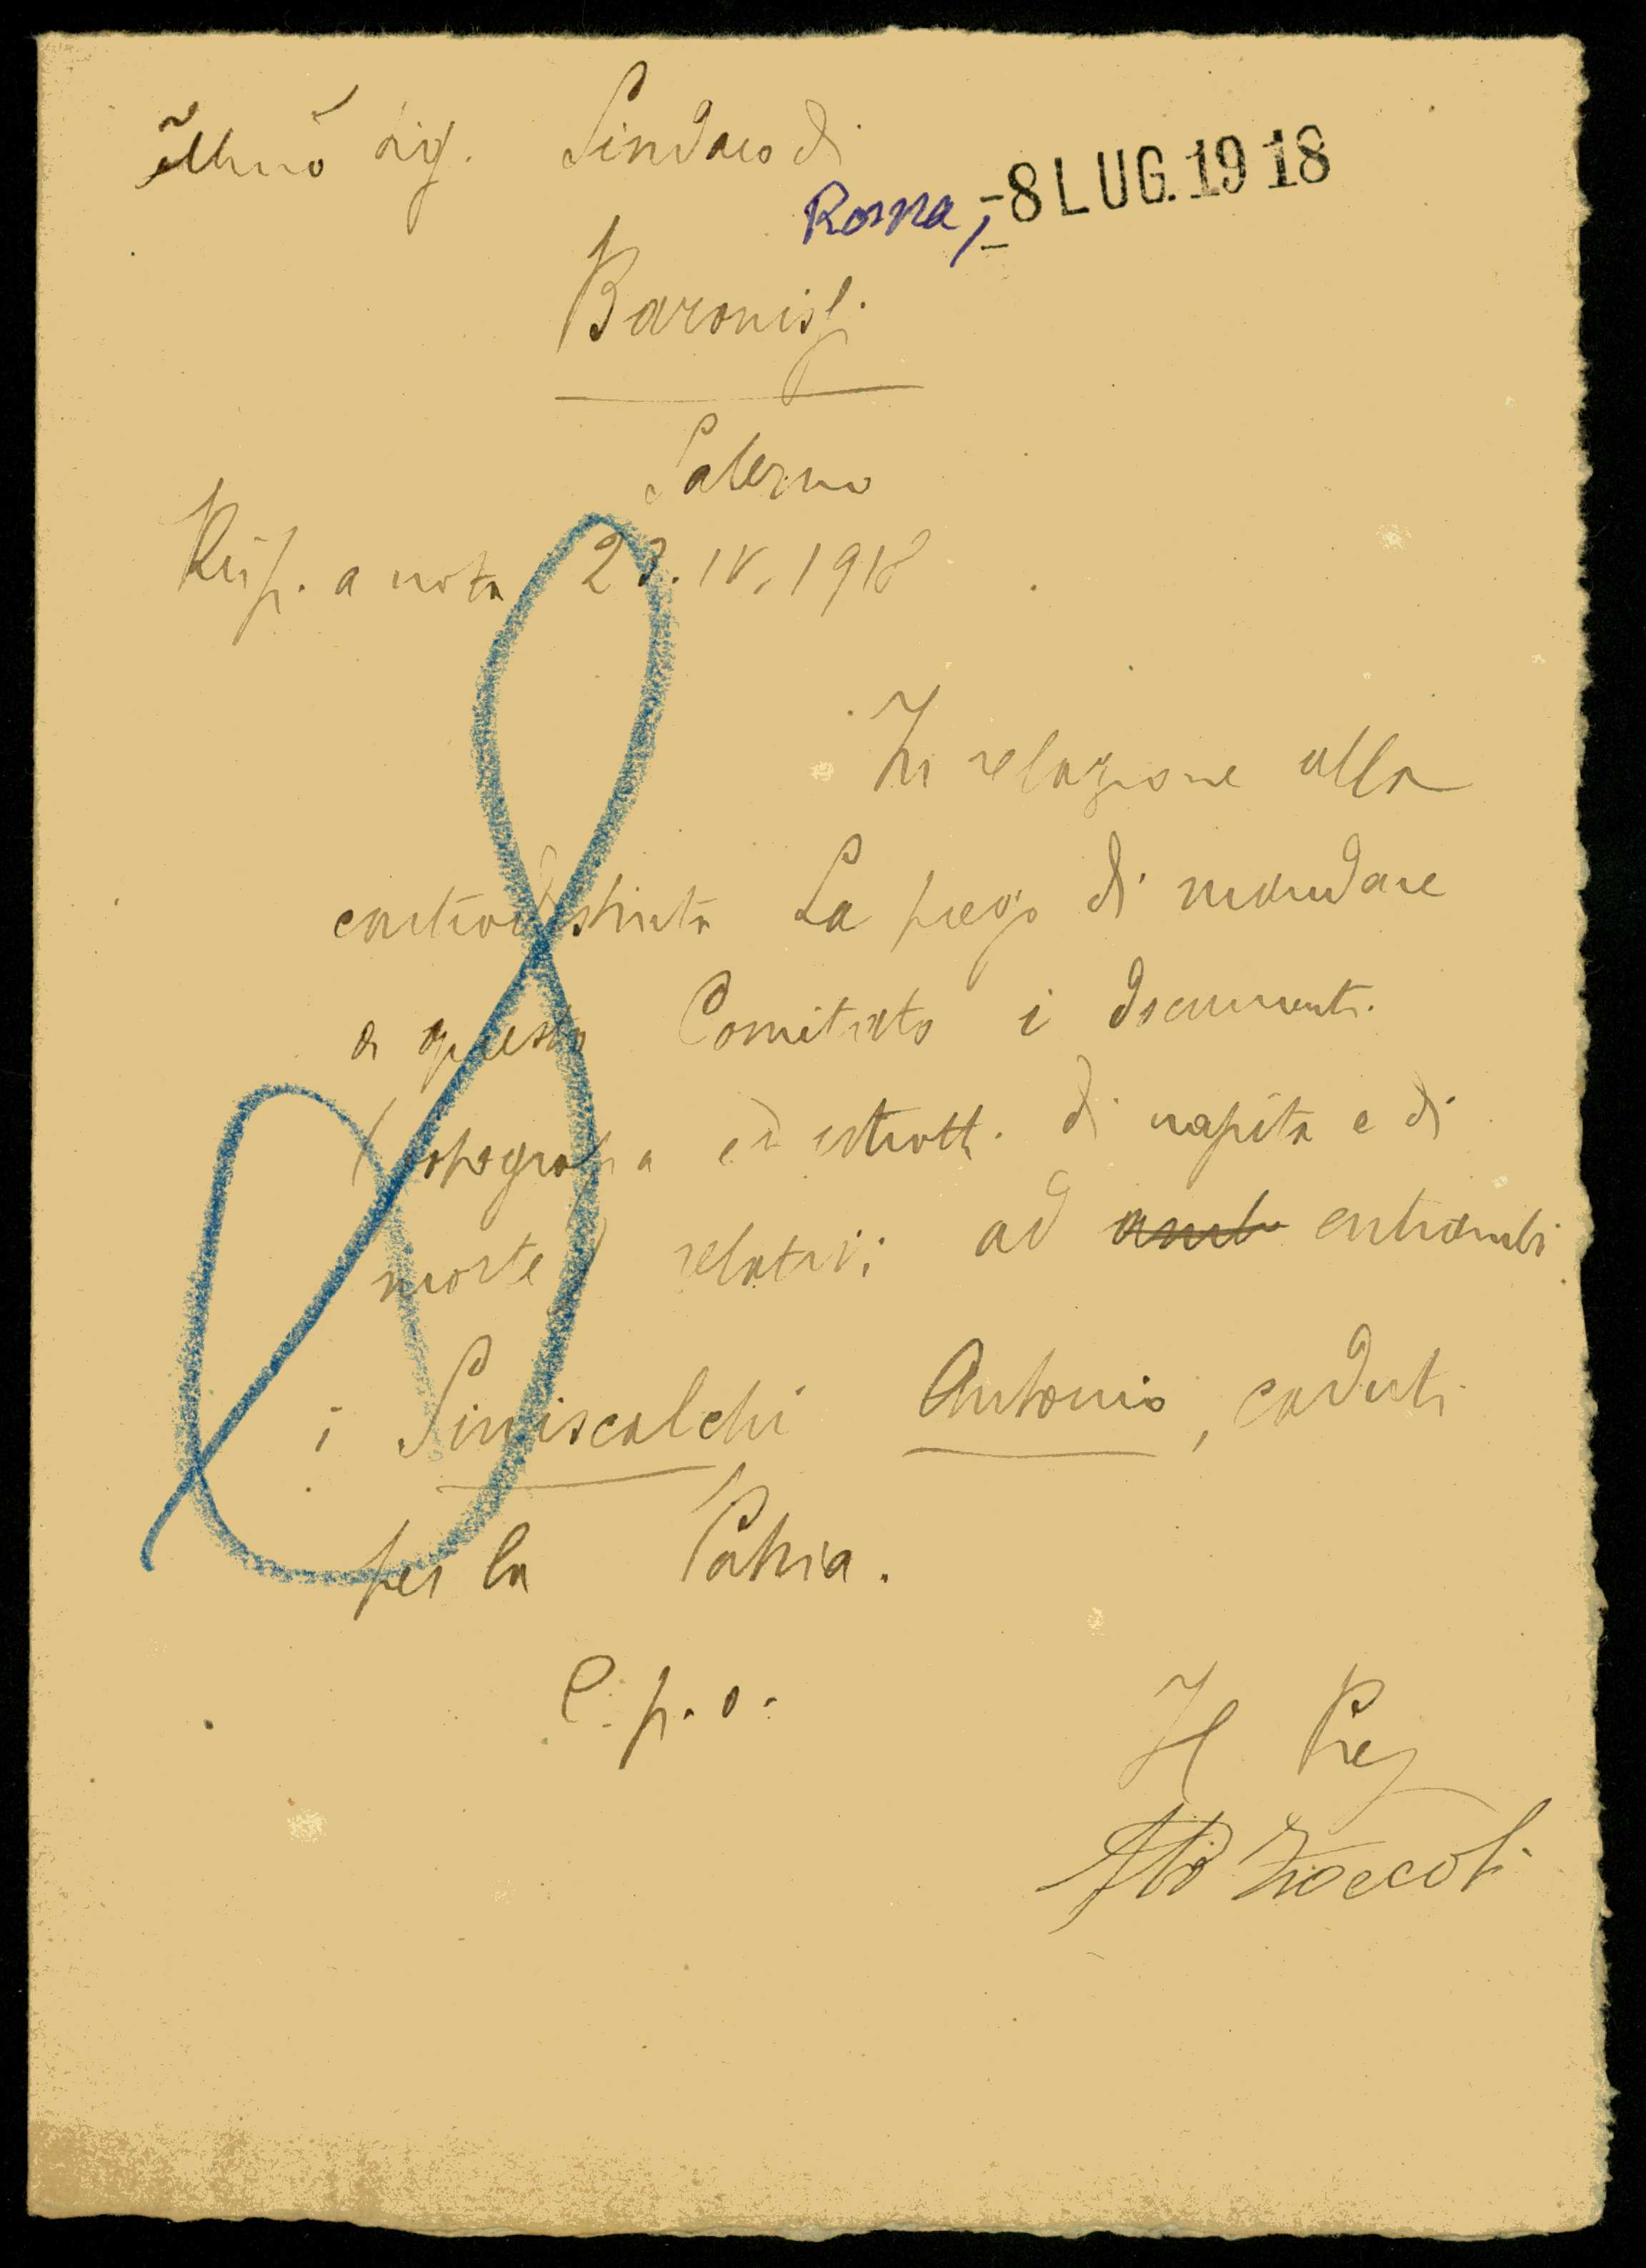 Illmo Sig. Sindaco di
Roma, -8 LUG. 1918
Baronissi
Salerno
Risp. a nota 23.IV.1918
In relazione alla
controdistinta La prego di mandare
a questo Comitato i documenti
(fotografia ed estratti di nascita e di
morte) relativi ad amb entrambi
i Siniscalchi Antonio, caduti
per la Patria.
C. p. o.
Il Pres